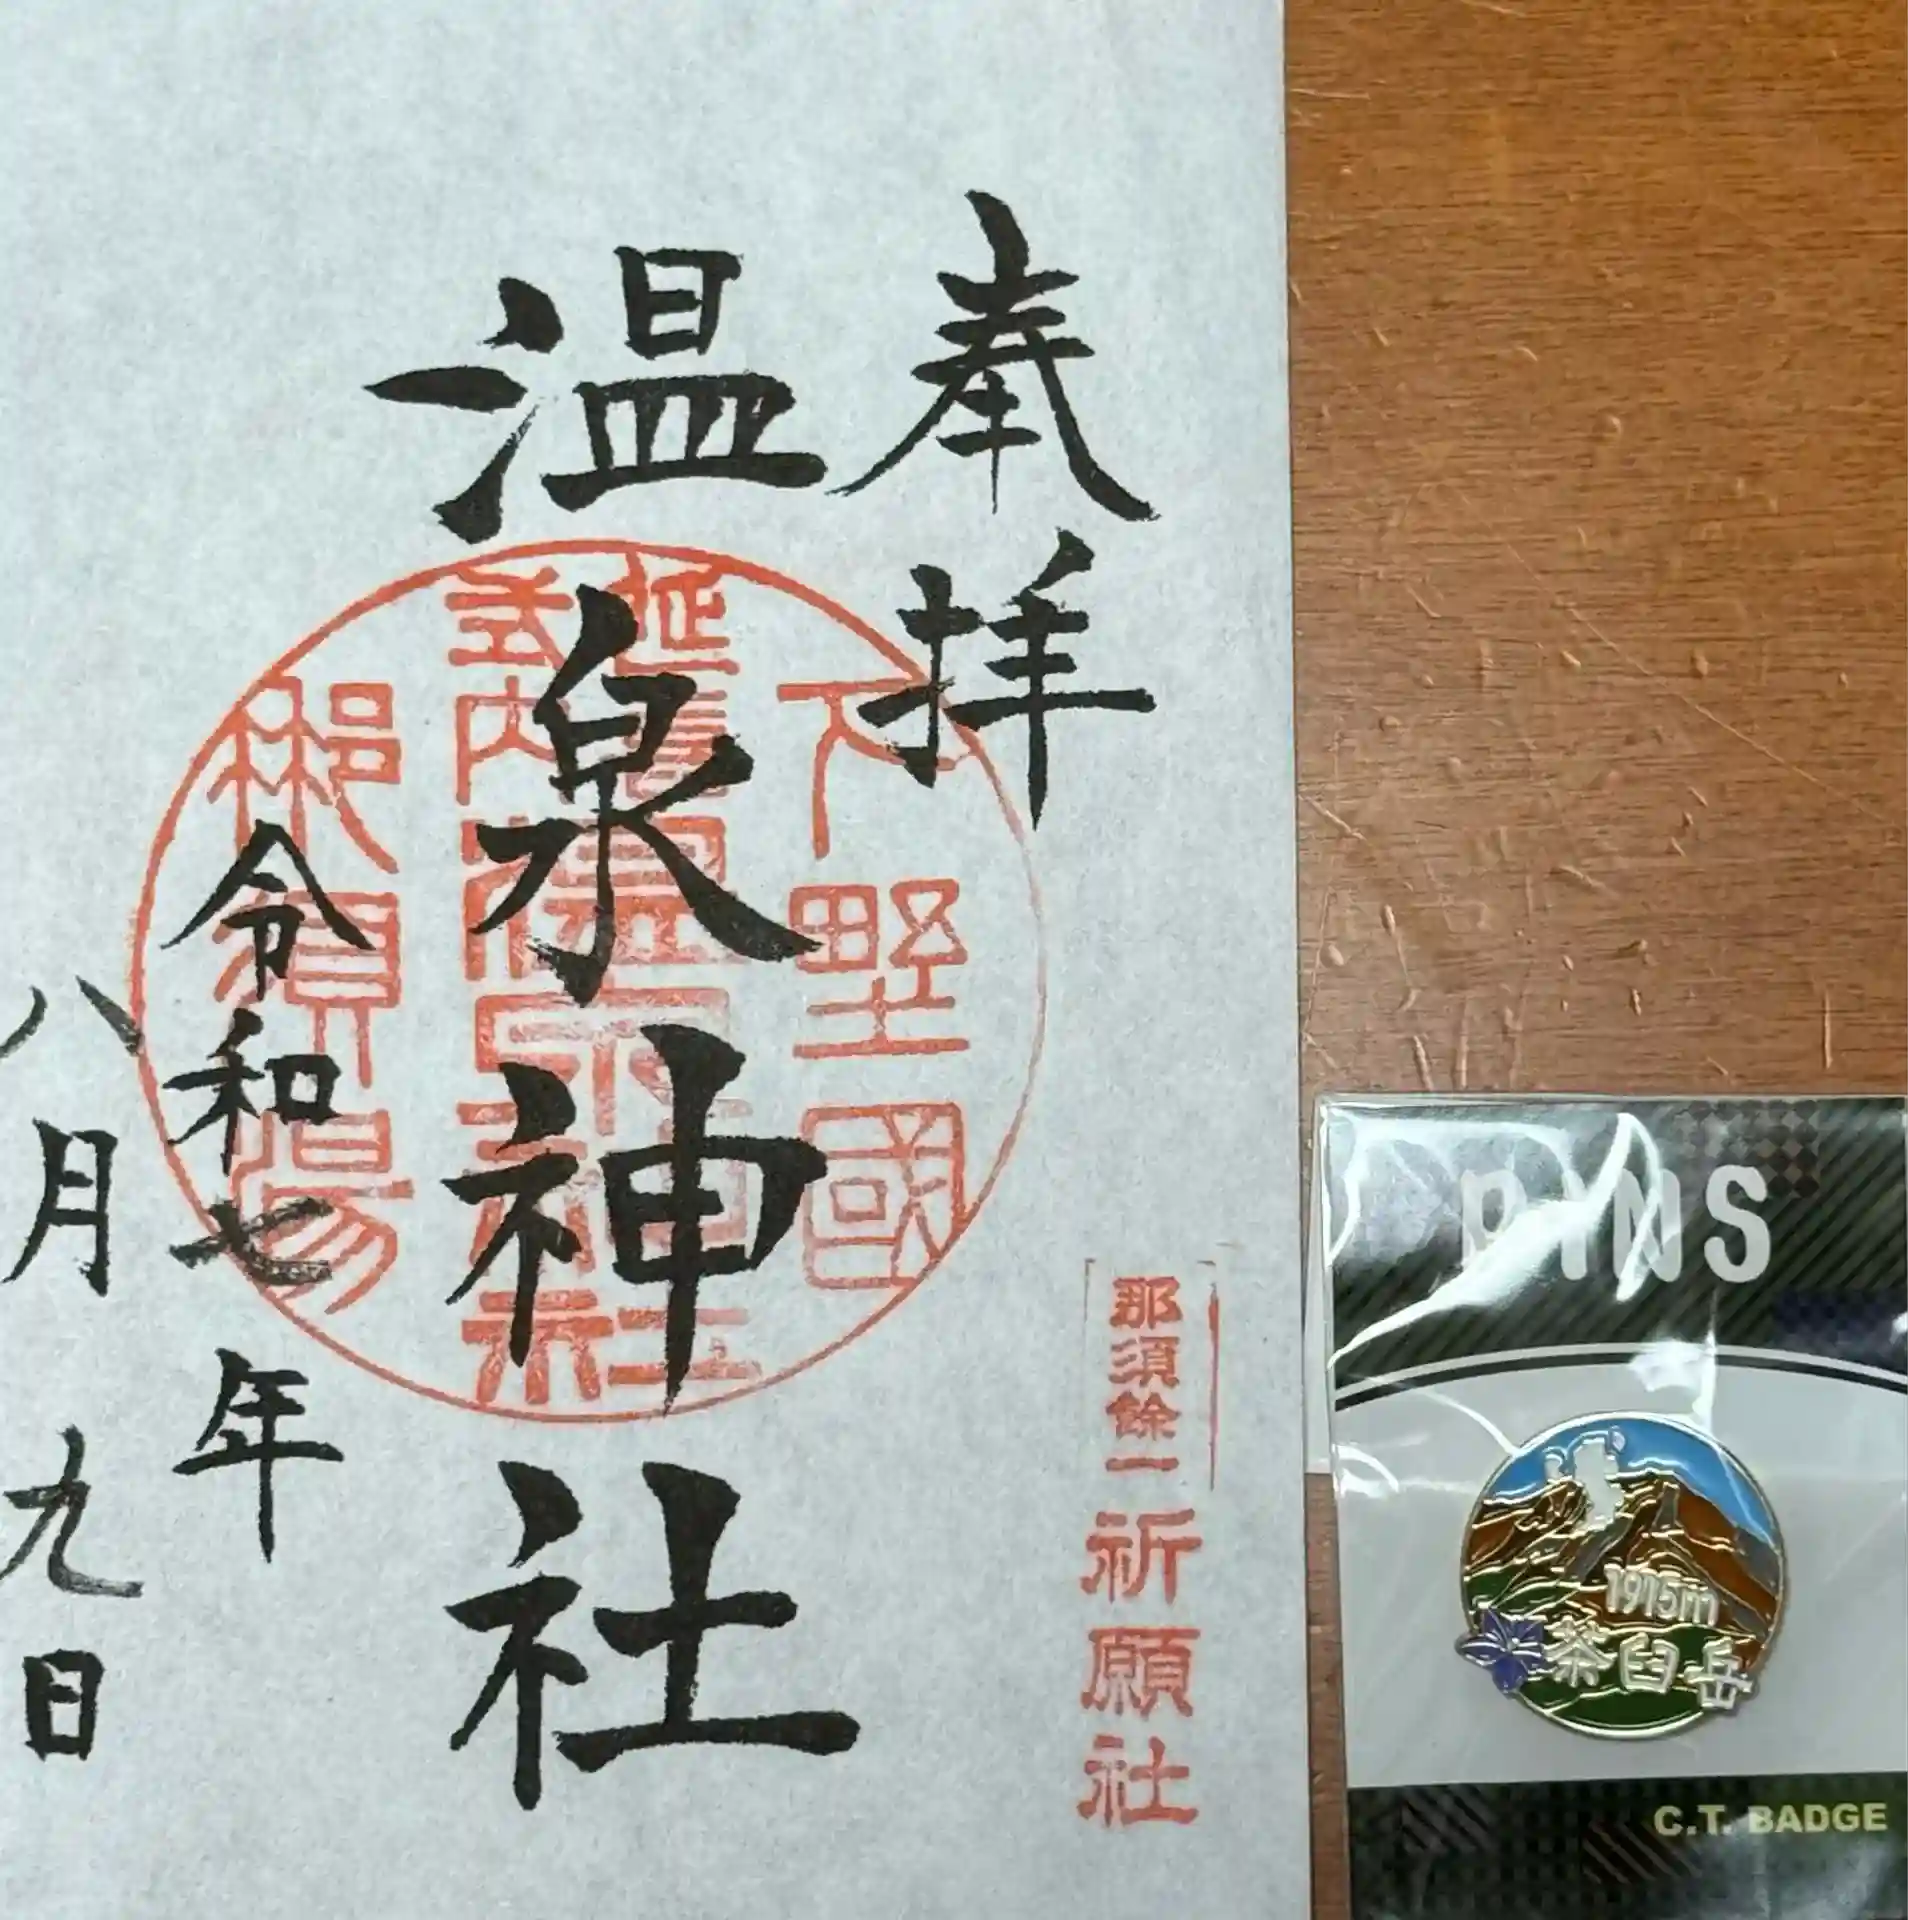 奉拝
下野國
延喜式内温泉神社
那須湯
温泉神社
令和七年
八月九日
那須餘一
祈願社
PINS
1915m
茶臼岳
C.T. BADGE